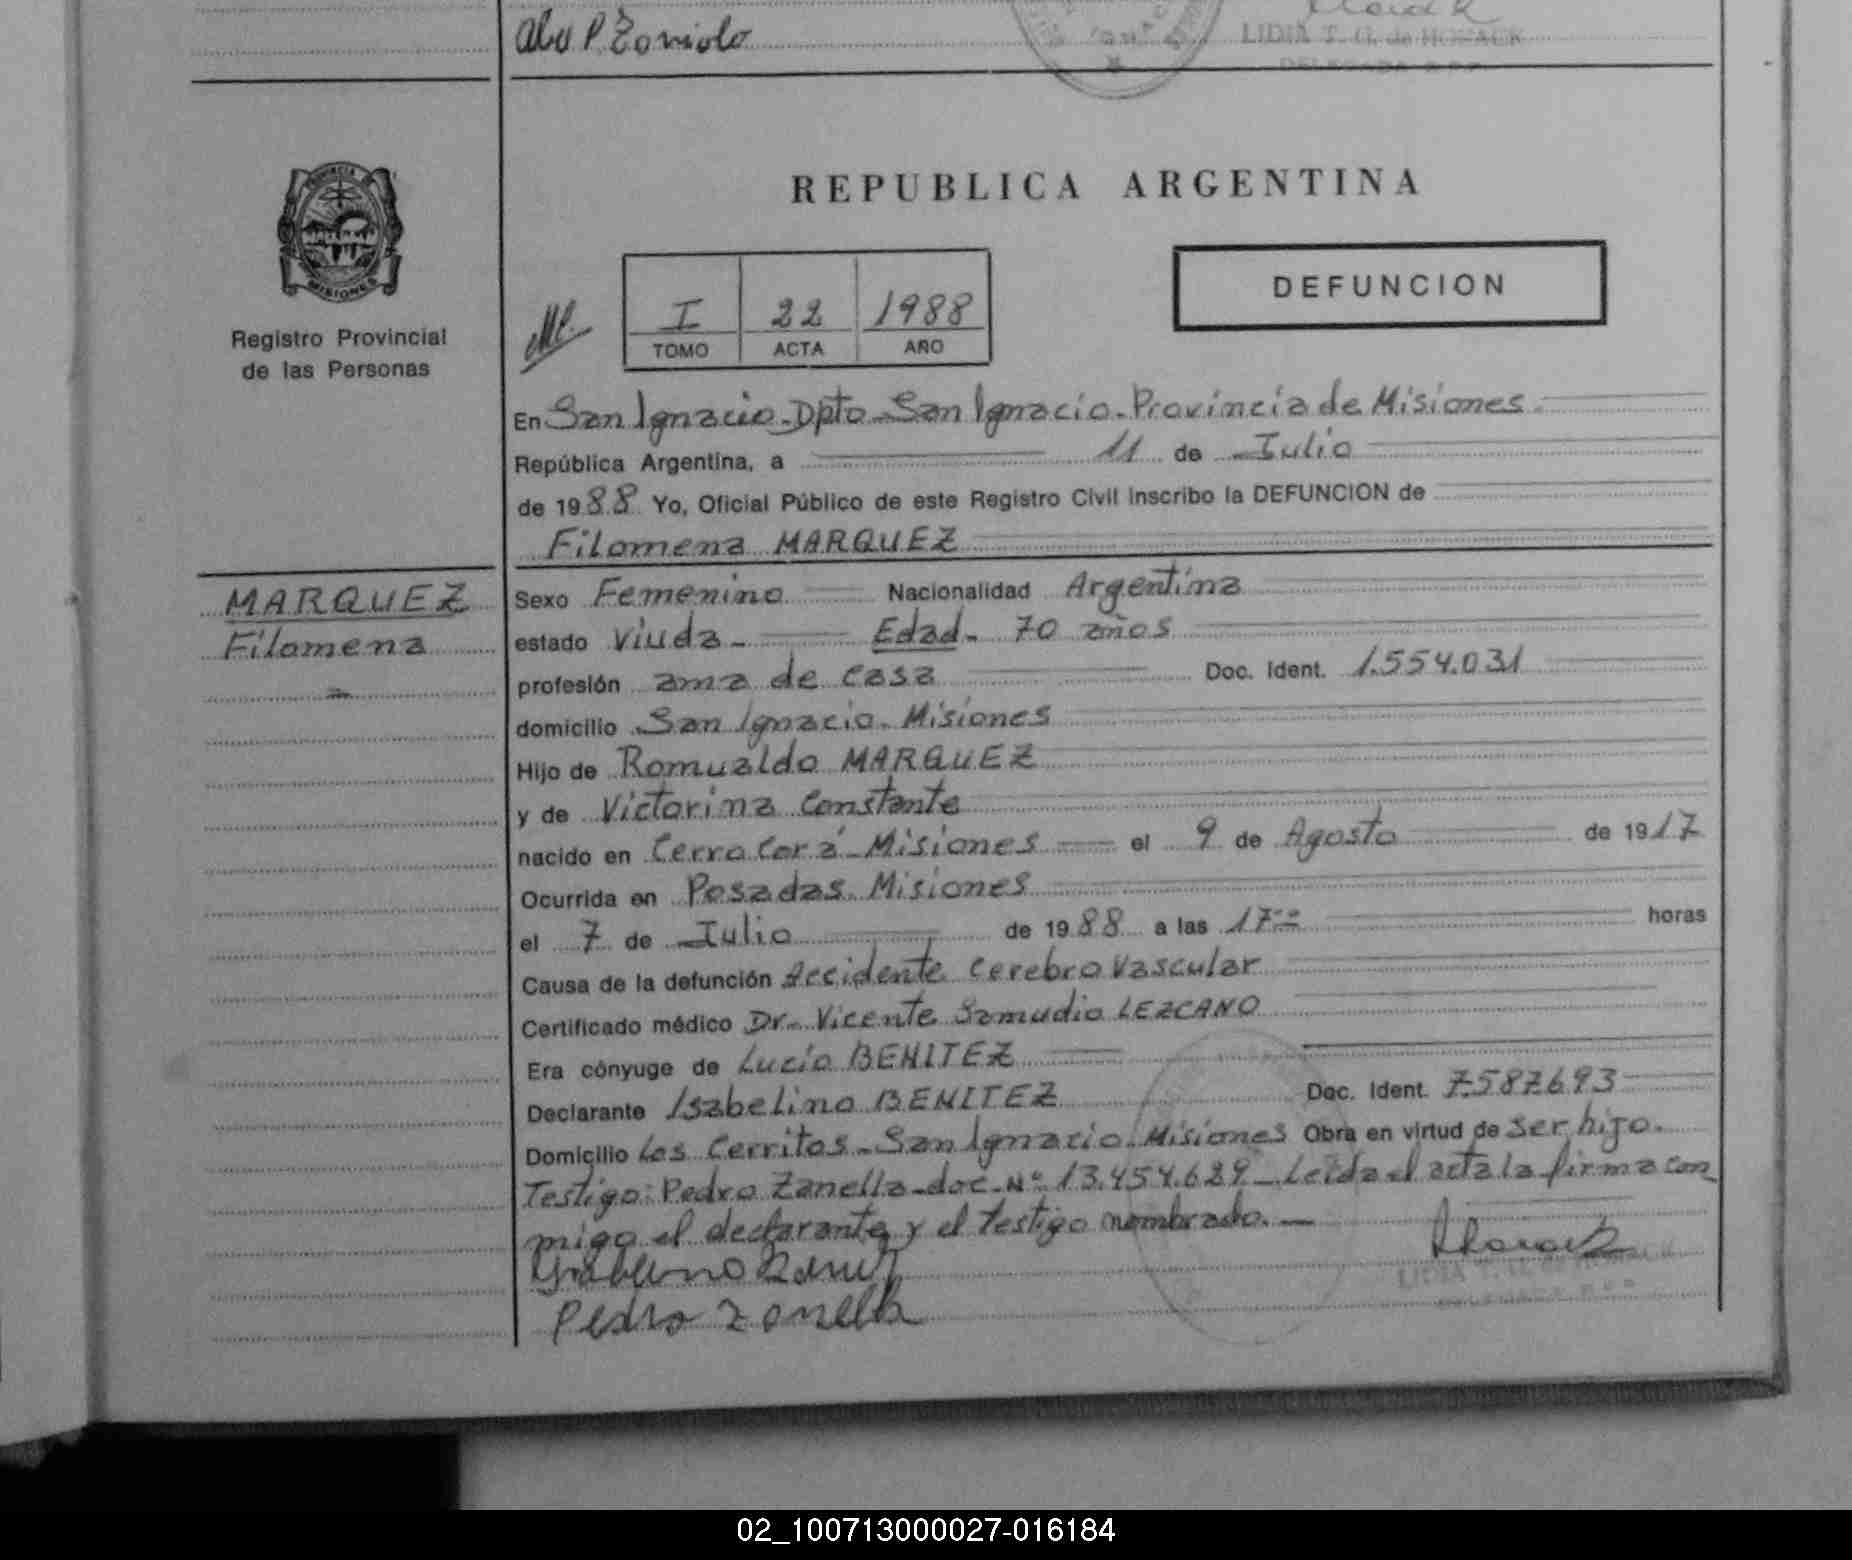 REPUBLICA ARGENTINA
PROVINCIA DE
MISIONES
Registro Provincial
de las Personas
I 22 1988
TOMO ACTA AÑO
DEFUNCION
En San Ignacio - Dpto - San Ignacio - Provincia de Misiones
República Argentina, a 11 de Iulio
de 1988 Yo, Oficial Público de este Registro Civil inscribo la DEFUNCION de
Filomena MARQUEZ
MARQUEZ
Filomena
Sexo Femenino Nacionalidad Argentina
estado viuda - Edad - 70 años
profesión ama de casa Doc. Ident. 1.554.031
domicilio San Ignacio - Misiones
Hijo de Romualdo MARQUEZ
y de Victorina Constante
nacido en Cerro Corá - Misiones el 9 de Agosto de 1917
Ocurrida en Posadas - Misiones
el 7 de Iulio de 1988 a las 17 horas
Causa de la defunción Accidente cerebro vascular
Certificado médico Dr. Vicente Samudio LEZCANO
Era cónyuge de Lucio BENITEZ
Declarante Isabelino BENITEZ Doc. Ident. 7.587.693
Domicilio Los Cerritos - San Ignacio - Misiones Obra en virtud de ser hijo.
Testigo: Pedro Zanella - doc. Nº 13.454.629 - Leída el acta la firma con
migo el declarante y el testigo nombrado. -
Pedro Zanella
02_100713000027-016184